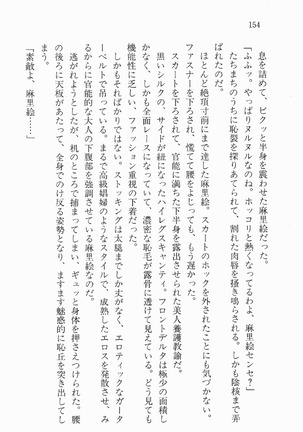 154
　息を詰めて、ピクッと半身を震わせた麻里絵だった。
「ふふッ。やっぱりヌルヌルなのね。ホッコリと熱くなってるわよ、麻里絵センセ？」
　たちまちのうちに恥裂を探りあてられて、割れた肉唇を掻き鳴らされる。しかも陰核まで弄
ばれたのだ。
　ほとんど絶頂寸前にまで達した麻里絵。スカートのホックを外されたことにも気づかない。
ファスナーを下ろされて、慌てて腰をよじっても、もう遅かった。
　スカートを下ろされて、官能に満ちた下半身を露出させられた美人養護教諭だ。
　黒いシルクの、サイドが紐になったハイレグスキャンティ。フロントデルタは極少の面積し
かなく、しかも全面レースになっていて、濃密な恥毛が露骨に透けて見えている。どう見ても
機能性に乏しい、ファッション重視の下着だった。
　しかもそればかりではない。ストッキングは太腿までしか丈がなく、エロティックなガータ
ーベルトで吊っている。まるで高級娼婦のようなスタイルで、成熟したエロスを発散させ、み
るからに官能的な大人の下腹部を強調させている麻里絵なのだ。
　逃がれようとしたが、机のところで捕まってしまい、ギュッと身体を押さえつけられた。腰
の後ろに天板があたって、全身でのけ反る姿勢となり、ますます魅惑的に恥丘を突き出してし
「素敵よ、麻里絵……」